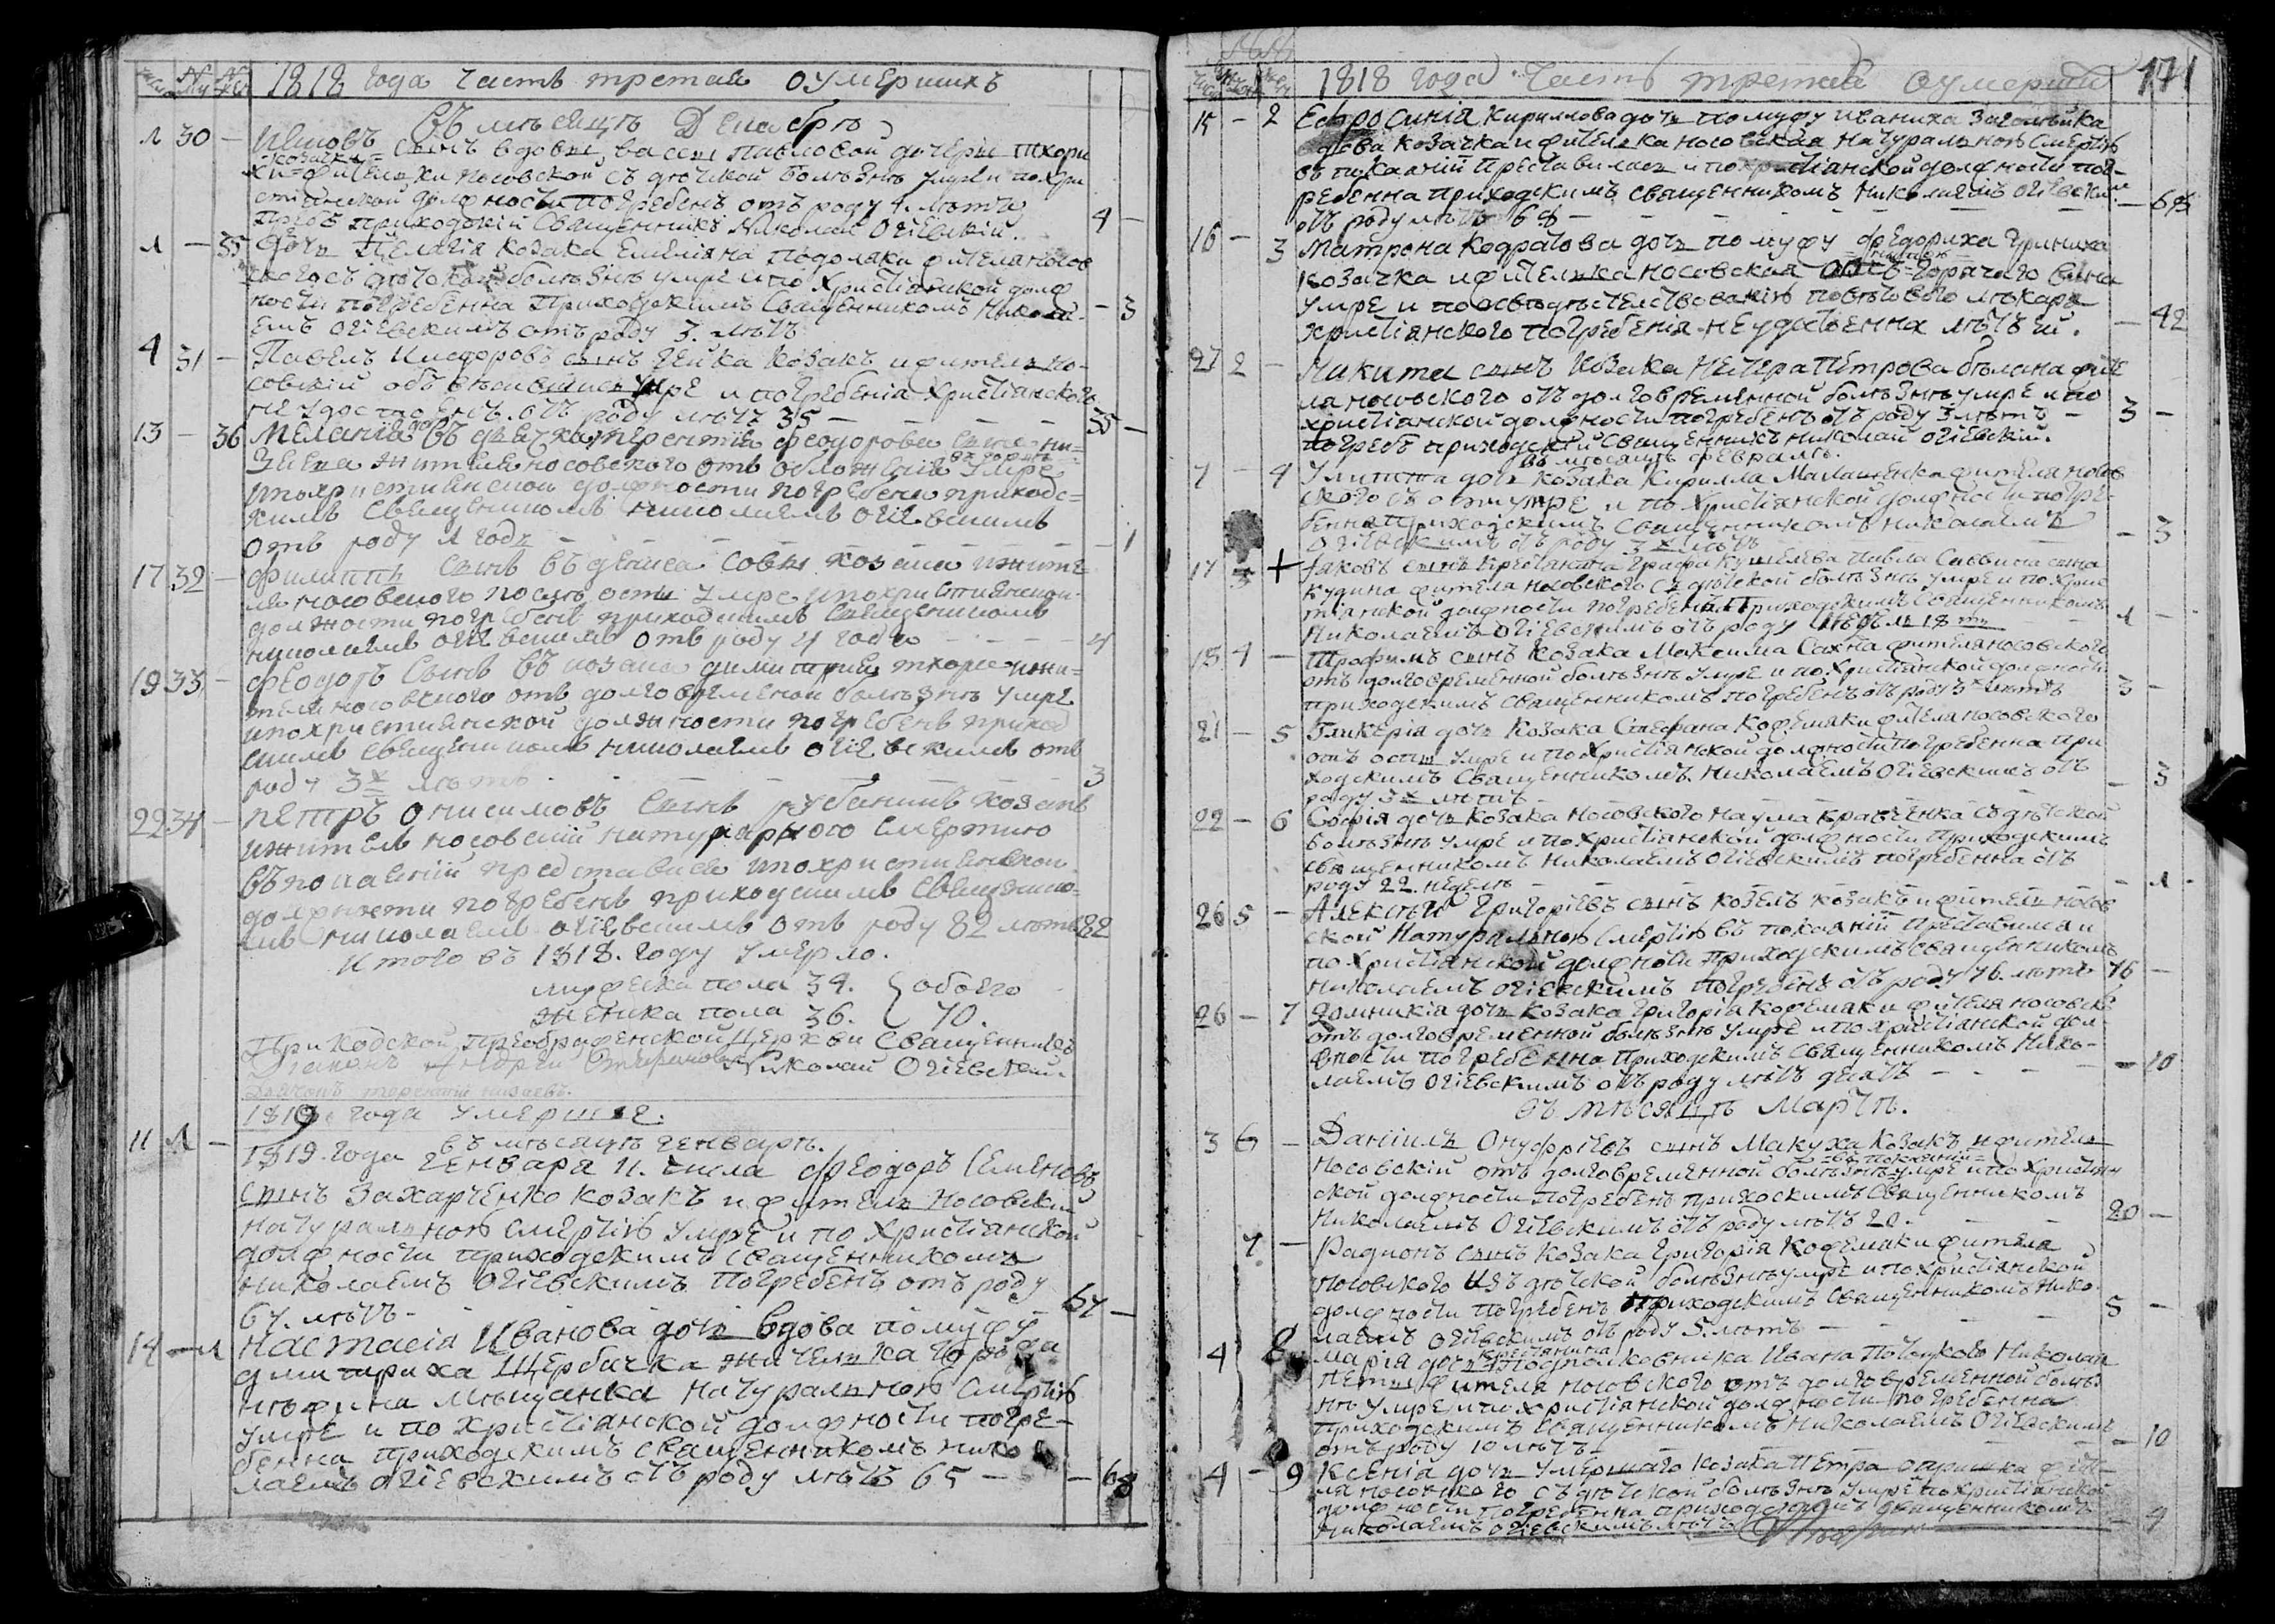 1818 года часть третая о умершихъ
Въ мѣсяцѣ Декабрѣ
1 30 – Іяковъ сынъ вдовы Васси Павловой дочери тхори
козачки
хи жителки носовской съ дѣтской болѣзнѣ умре и похри
стіянской должности погребенъ отъ роду 4. лѣтъ
погребъ приходскій Священникъ Николай Огіевскій. 4 –
1 – 35 дочь Пелагія козака Емеліяна Подоляки жителя носов
ского съ дѣтской болѣзнѣ умре и по Христіянской долж
ности погребенна Приходскимъ Священникомъ Никола-
емъ Огіевскимъ отъ роду 3. лѣтъ – 3
4 31 – Павелъ Исидоровъ сынъ козакъ и житель но-
совскій объ умре и погребенія Христіянского
не удостоенъ. отъ роду лѣтъ 35 35 –
13 – 36 Меланія Терентія Феодорова сына
жителя носовского отъ умре
и похристиянской должности погребена приходс=
кимъ Священникомъ Николаемъ Огіевскимъ
отъ роду 1 годъ – 1
17 32 – Филиппъ сынъ Совы козака и жите
ля носовского по оспы умре и похристиянской
должности погребенъ приходскимъ Священикомъ
Николаемъ Огіевскимъ отъ роду 4 года 4
19 33 – Феодотъ Сынъ козака Димитрия тхора и жи=
теля носовского отъ долговременой болѣзнѣ умре
и похристиянской должности погребенъ приход
скимъ священикомъ Николаемъ Огіевскимъ отъ
роду 3х лѣтъ 3
22 34 – Петръ Онисимовъ Сынъ козакъ
и житель носовский натуралною смертию
въ покаянии преставися и похристиянской
должности погребенъ приходскимъ Священико=
мъ Николаемъ Огіевскимъ отъ роду 82 лѣтъ 82
Итого въ 1818. году умерло.
мужеска пола 34. обоего
женска пола 36. 70.
Приходской Преображенской Церкви Священникъ
Николай Огіевский.
Диаконъ Андрей
Дьячокъ
1819 года умершие.
въ мѣсяцѣ генварѣ.
11 1 – 1819. года генваря 11. числа Феодоръ Семеновъ
сынъ Захарченко козакъ и житель носовский
натуральною смертію умре и по Христіянской
должности приходскимъ священникомъ
Николаемъ Огіевскимъ погребенъ отъ роду
67. лѣтъ – 67 –
14 – 1 Настасія Иванова дочь вдова по мужу
Димитриха Щербачка жителка города
Нѣжина мѣщанка натуральною смертію
умре и по Христіянской должности погре-
бенна приходскимъ священникомъ Нико
лаемъ Огіевскимъ отъ роду лѣтъ 65 – – 65
1818 года Часть третая о умерши 171
15 – 2 Ефросинія Кириллова дочь по мужу Иваниха
вдова козачка и жителка носовская натуральною смертію
въ покаяніи преставилась и похристіянской должности пог-
ребенна приходскимъ священникомъ Николаемъ Огіевским
отъ роду лѣтъ 68 – 68
16 – 3 Матрона Кодратова дочь по мужу Федориха Гриниха
козачка и жителка носовская отъ горячаго вина
умре и по освѣдѣтелствованію повѣтового лѣкаря
Христіянского погребенія неудостоенна – 42
27 2 – Никита сынъ козака Петрова жите
ля носовского отъ долговременной болѣзнѣ умре и по
христіянской должности погребенъ отъ роду 3 лѣтъ – 3 –
погребъ приходскій Священникъ Николай Огіевскій.
въ мѣсяцѣ февралѣ.
7 – 4 Улиттта дочь козака Кирилла Малашенка жителя носов
ского съ оспи умре и по Христіянской должности погре-
бенна приходскимъ Священникомъ Николаемъ
Огіевскимъ отъ роду 3х лѣтъ – 3
17 3 + Іаковъ сынъ крестянина Графа Кушелева Павла Саввина сына
жителя носовского съ дѣтской болѣзнѣ умре и по Хрис
тіянской должности погребенъ Приходскимъ Священникомъ
Николаемъ Огіевскимъ отъ роду недѣль 18 ть 1 –
18 4 – Трофимъ сынъ козака Максима жителя носовского
отъ долговременной болѣзнѣ умре и по Христіянской должности
приходскимъ священникомъ погребенъ отъ роду 3х лѣтъ 3 –
21 – 5 Гликерія дочь козака Стефана Кожемяки жителя носовского
отъ оспи умре и по Христіянской должности погребенна при
ходскимъ Священникомъ Николаемъ Огіевскимъ отъ
роду 3х лѣтъ – 3
22 – 6 Софія дочь козака носовского Наума Кравченка съ дѣтской
болѣзнѣ умре и по Христіянской должности приходскимъ
священникомъ Николаемъ Огіевскимъ погребенна отъ
роду 22. неделѣ – 1
26 5 – Алексѣй Григоріевъ сынъ Козелъ козакъ и житель носов
ской натуральною смертію въ покаяніи преставился и
по Христіянской должности приходскимъ священникомъ
Николаемъ Огіевскимъ погребенъ отъ роду 76. лѣтъ 76 –
26 – 7 Домникія дочь козака Григорія Кожемяки жителя носовск
отъ долговременной болѣзнѣ умре и по Христіянской дол-
жности погребенна приходскимъ священникомъ Нико-
лаемъ Огіевскимъ отъ роду лѣтъ десять – 10
въ мѣсяцѣ Мартѣ.
3 6 – Даніилъ Онуфріевъ сынъ Макуха козакъ и житель
въ покаяніи
носовскій отъ долговременной болѣзнѣ умре и по Христіян
ской должности погребенъ приходскимъ Священникомъ
Николаемъ Огіевскимъ отъ роду лѣтъ 20. 20 –
7 – Радионъ сынъ козака Григорія Кожемяки жителя
носовского изъ дѣтской болѣзнѣ умре и по Христіянской
должности погребенъ приходскимъ священникомъ Нико
лаемъ Огіевскимъ отъ роду 5. лѣтъ 5 –
крестянина
4 8 Марія дочь подполковника Ивана Николая
жителя носовского отъ долговременной болѣз
нѣ умре и по христіянской должности погребенна
приходскимъ священникомъ Николаемъ Огіевскимъ
отъ роду 10 лѣтъ – 10
4 – 9 Ксенія дочь умершаго козака Петра жите
ля носовского съ дѣтской болѣзнѣ умре по христіянской
должности погребенна приходскимъ священникомъ
Николаемъ Огіевскимъ лѣтъ – 9